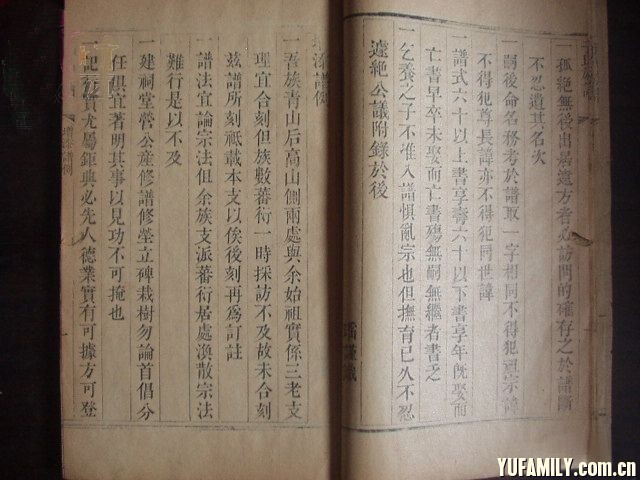 一孤絶無後出居遠方者必訪問的確存之於譜斷
不忍遺其名次
嗣後命名務考於譜取一字相同不得犯祖宗諱
不得犯尊長諱亦不得犯同世諱
一譜式六十以上書享壽六十以下書享年旣娶而
亡書早卒未娶而亡書殤無嗣無繼者書乏
一乞養之子不准入譜惧亂宗也但撫育已久不忍
遽絶公議附錄於後
添譜例
一吾族青山后高山側兩處與余始祖實係三老支
理宜合刻但族數蕃衍一時採訪不及故未合刻
兹譜所刻祗載本支以俟後刻再爲訂註
一譜法宜論宗法但余族支派蕃衍居處渙散宗法
難行是以不及
一建祠堂營公産修譜修塋立碑栽樹勿論首倡分
任俱宜著明其事以見功不可掩也
一記行實尤屬鉅典必先人德業實有可據方可登
增添譜例
YUFAMILY.com.cn